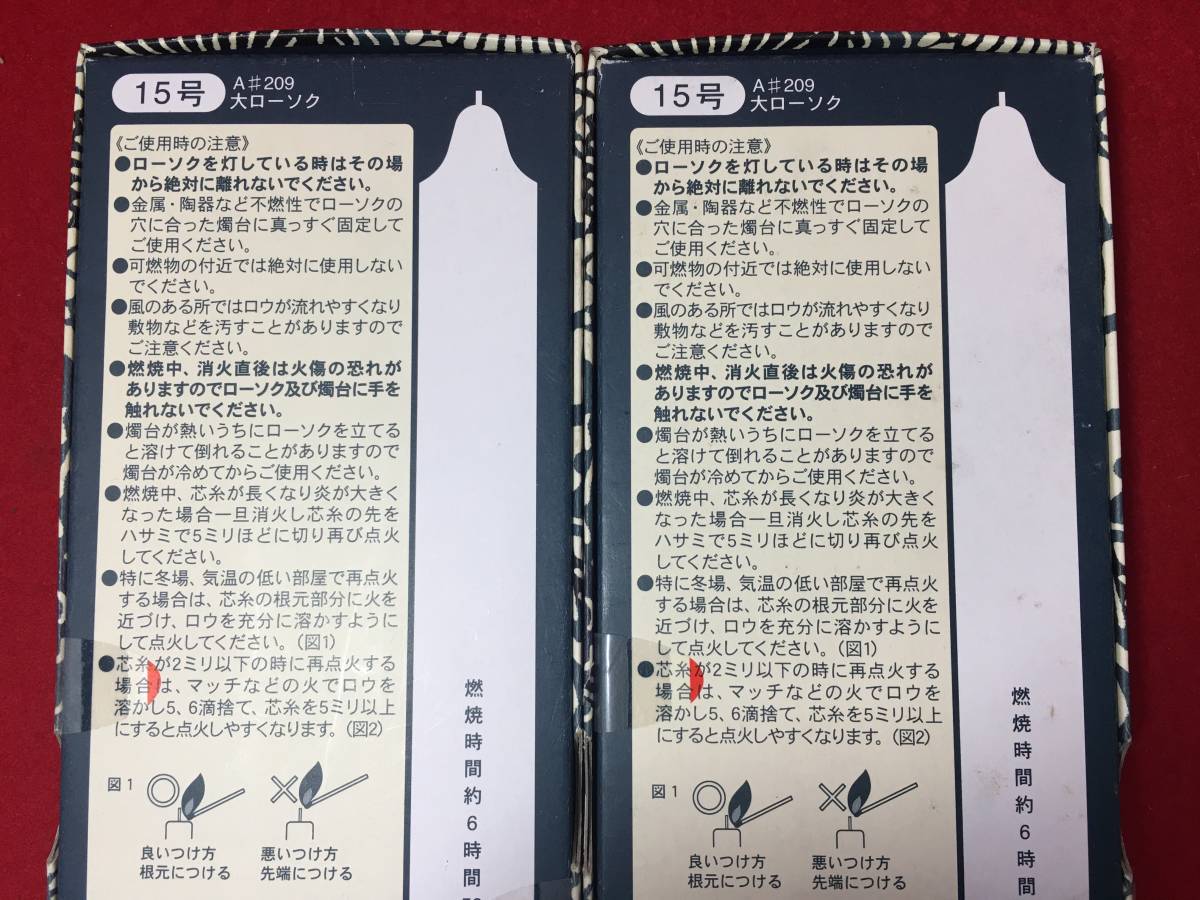 15号
A♯209
大ローソク
《ご使用時の注意》
●ローソクを灯している時はその場
から絶対に離れないでください。
●金属・陶器など不燃性でローソクの
穴に合った燭台に真っすぐ固定して
ご使用ください。
●可燃物の付近では絶対に使用しない
でください。
●風のある所ではロウが流れやすくなり
敷物などを汚すことがありますので
ご注意ください。
●燃焼中、消火直後は火傷の恐れが
ありますのでローソク及び燭台に手を
触れないでください。
●燭台が熱いうちにローソクを立てる
と溶けて倒れることがありますので
燭台が冷めてからご使用ください。
●燃焼中、芯糸が長くなり炎が大きく
なった場合一旦消火し芯糸の先を
ハサミで5ミリほどに切り再び点火
してください。
●特に冬場、気温の低い部屋で再点火
する場合は、芯糸の根元部分に火を
近づけ、ロウを充分に溶かすように
して点火してください。(図1)
●芯糸が2ミリ以下の時に再点火する
場合は、マッチなどの火でロウを
溶かし5、6滴捨て、芯糸を5ミリ以上
にすると点火しやすくなります。(図2)
図1
良いつけ方
根元につける
悪いつけ方
先端につける
燃焼時間約6時間
15号
A♯209
大ローソク
《ご使用時の注意》
●ローソクを灯している時はその場
から絶対に離れないでください。
●金属・陶器など不燃性でローソクの
穴に合った燭台に真っすぐ固定して
ご使用ください。
●可燃物の付近では絶対に使用しない
でください。
●風のある所ではロウが流れやすくなり
敷物などを汚すことがありますので
ご注意ください。
●燃焼中、消火直後は火傷の恐れが
ありますのでローソク及び燭台に手を
触れないでください。
●燭台が熱いうちにローソクを立てる
と溶けて倒れることがありますので
燭台が冷めてからご使用ください。
●燃焼中、芯糸が長くなり炎が大きく
なった場合一旦消火し芯糸の先を
ハサミで5ミリほどに切り再び点火
してください。
●特に冬場、気温の低い部屋で再点火
する場合は、芯糸の根元部分に火を
近づけ、ロウを充分に溶かすように
して点火してください。(図1)
●芯糸が2ミリ以下の時に再点火する
場合は、マッチなどの火でロウを
溶かし5、6滴捨て、芯糸を5ミリ以上
にすると点火しやすくなります。(図2)
図1
良いつけ方
根元につける
悪いつけ方
先端につける
燃焼時間約6時間